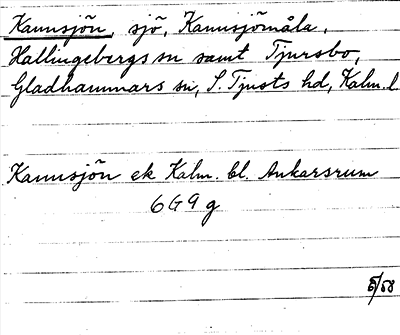 Kamsjön, sjö, Kamsjömåla,
Hallingebergs sn samt Tjursbo,
Gladhammars sn, S. Tjusts hd, Kalm. l
Kamsjön ek Kalm. bl. Ankarsrum
6G9g